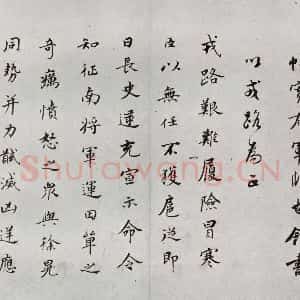 右軍
以戎路為
戎路艱難履險冒寒
臣以無任不獲扈從即
日長史逮充宣示命令
知征南將軍運田單之
奇癘憤怒之眾與徐晃
同勢并力翦滅凶逆應
Shufawang.CN